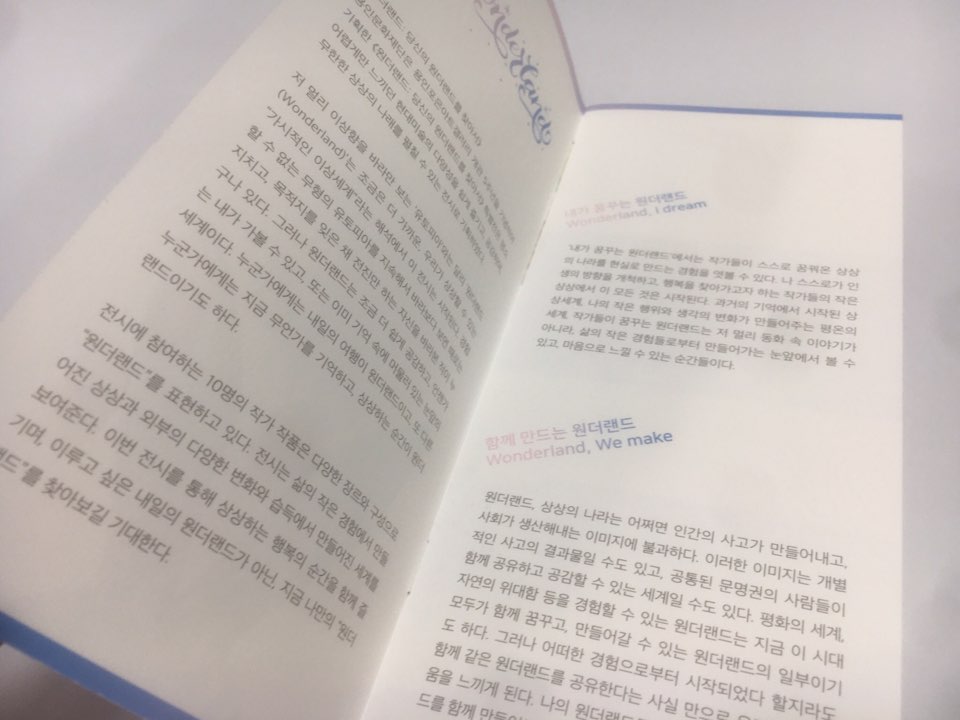 Wonderland
원더랜드: 당신의 원더랜드를 찾아서
용인문화재단은 용인포은아트갤러리 개관
기획한 《원더랜드: 당신의 원더랜드를 찾아서》
어렵게만 느끼던 현대미술의 다양성을 쉽게 즐기고, 공감하며,
무한한 상상의 나래를 펼칠 수 있는 전시로 기획하였다.
저 멀리 이상향을 바라만 보는 '유토피아'와는 달리, '원더랜드
(Wonderland)'는 조금은 더 가까운, 우리가 상상할 수 있는
"가시적인 이상세계"라는 해석에서 이 전시는 시작한다. 경험
할 수 없는 무형의 유토피아를 지속해서 바라보다 보면 때로는
지치고, 목적지를 잊은 채 전진만 하는 자신을 바라본 적이 누
구나 있다. 그러나 원더랜드는 조금 더 쉽게 공감하고, 언젠가
는 내가 가볼 수 있고, 또는 이미 기억 속에 머물러 있는 눈앞의
세계이다. 누군가에게는 내일의 여행이 원더랜드이고, 또 다른
누군가에게는 지금 무언가를 기억하고, 상상하는 순간이 원더
랜드이기도 하다.
전시에 참여하는 10명의 작가 작품은 다양한 장르와 구성으로
"원더랜드"를 표현하고 있다. 전시는 삶의 작은 경험에서 만들
어진 상상과 외부의 다양한 변화와 습득에서 만들어진 세계를
보여준다. 이번 전시를 통해 상상하는 행복의 순간을 함께 즐
기며, 이루고 싶은 내일의 원더랜드가 아닌, 지금 나만의 "원더
랜드"를 찾아보길 기대한다.
내가 꿈꾸는 원더랜드
Wonderland, I dream
'내가 꿈꾸는 원더랜드'에서는 작가들이 스스로 꿈꿔온 상상
의 나라를 현실로 만드는 경험을 엿볼 수 있다. 나 스스로가 인
생의 방향을 개척하고, 행복을 찾아가고자 하는 작가들의 작은
상상에서 이 모든 것은 시작된다. 과거의 기억에서 시작된 상
상세계, 나의 작은 행위와 생각의 변화가 만들어주는 평온의
세계, 작가들이 꿈꾸는 원더랜드는 저 멀리 동화 속 이야기가
아니라, 삶의 작은 경험들로부터 만들어가는 눈앞에서 볼 수
있고, 마음으로 느낄 수 있는 순간들이다.
함께 만드는 원더랜드
Wonderland, We make
원더랜드, 상상의 나라는 어쩌면 인간의 사고가 만들어내고,
사회가 생산해내는 이미지에 불과하다. 이러한 이미지는 개별
적인 사고의 결과물일 수도 있고, 공통된 문명권의 사람들이
함께 공유하고 공감할 수 있는 세계일 수도 있다. 평화의 세계,
자연의 위대함 등을 경험할 수 있는 원더랜드는 지금 이 시대
모두가 함께 꿈꾸고, 만들어갈 수 있는 원더랜드의 일부이기
도 하다. 그러나 어떠한 경험으로부터 시작되었다 할지라도
함께 같은 원더랜드를 공유한다는 사실 만으로
움을 느끼게 된다. 나의 원더랜드
드를 함께